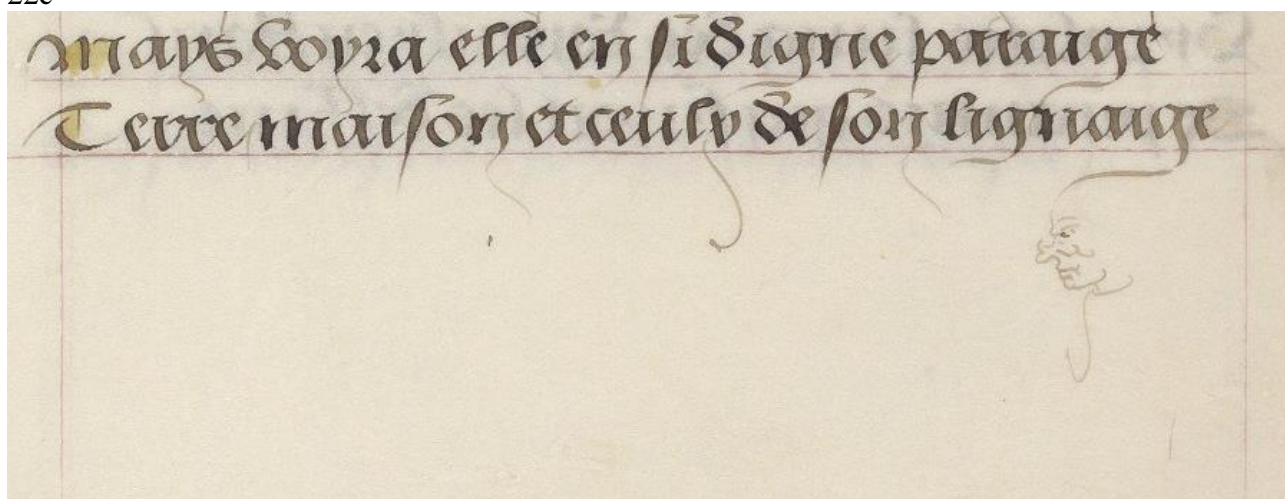 mays voyra elle en si digne paraige
Terre maison et ceulx de son lignaige